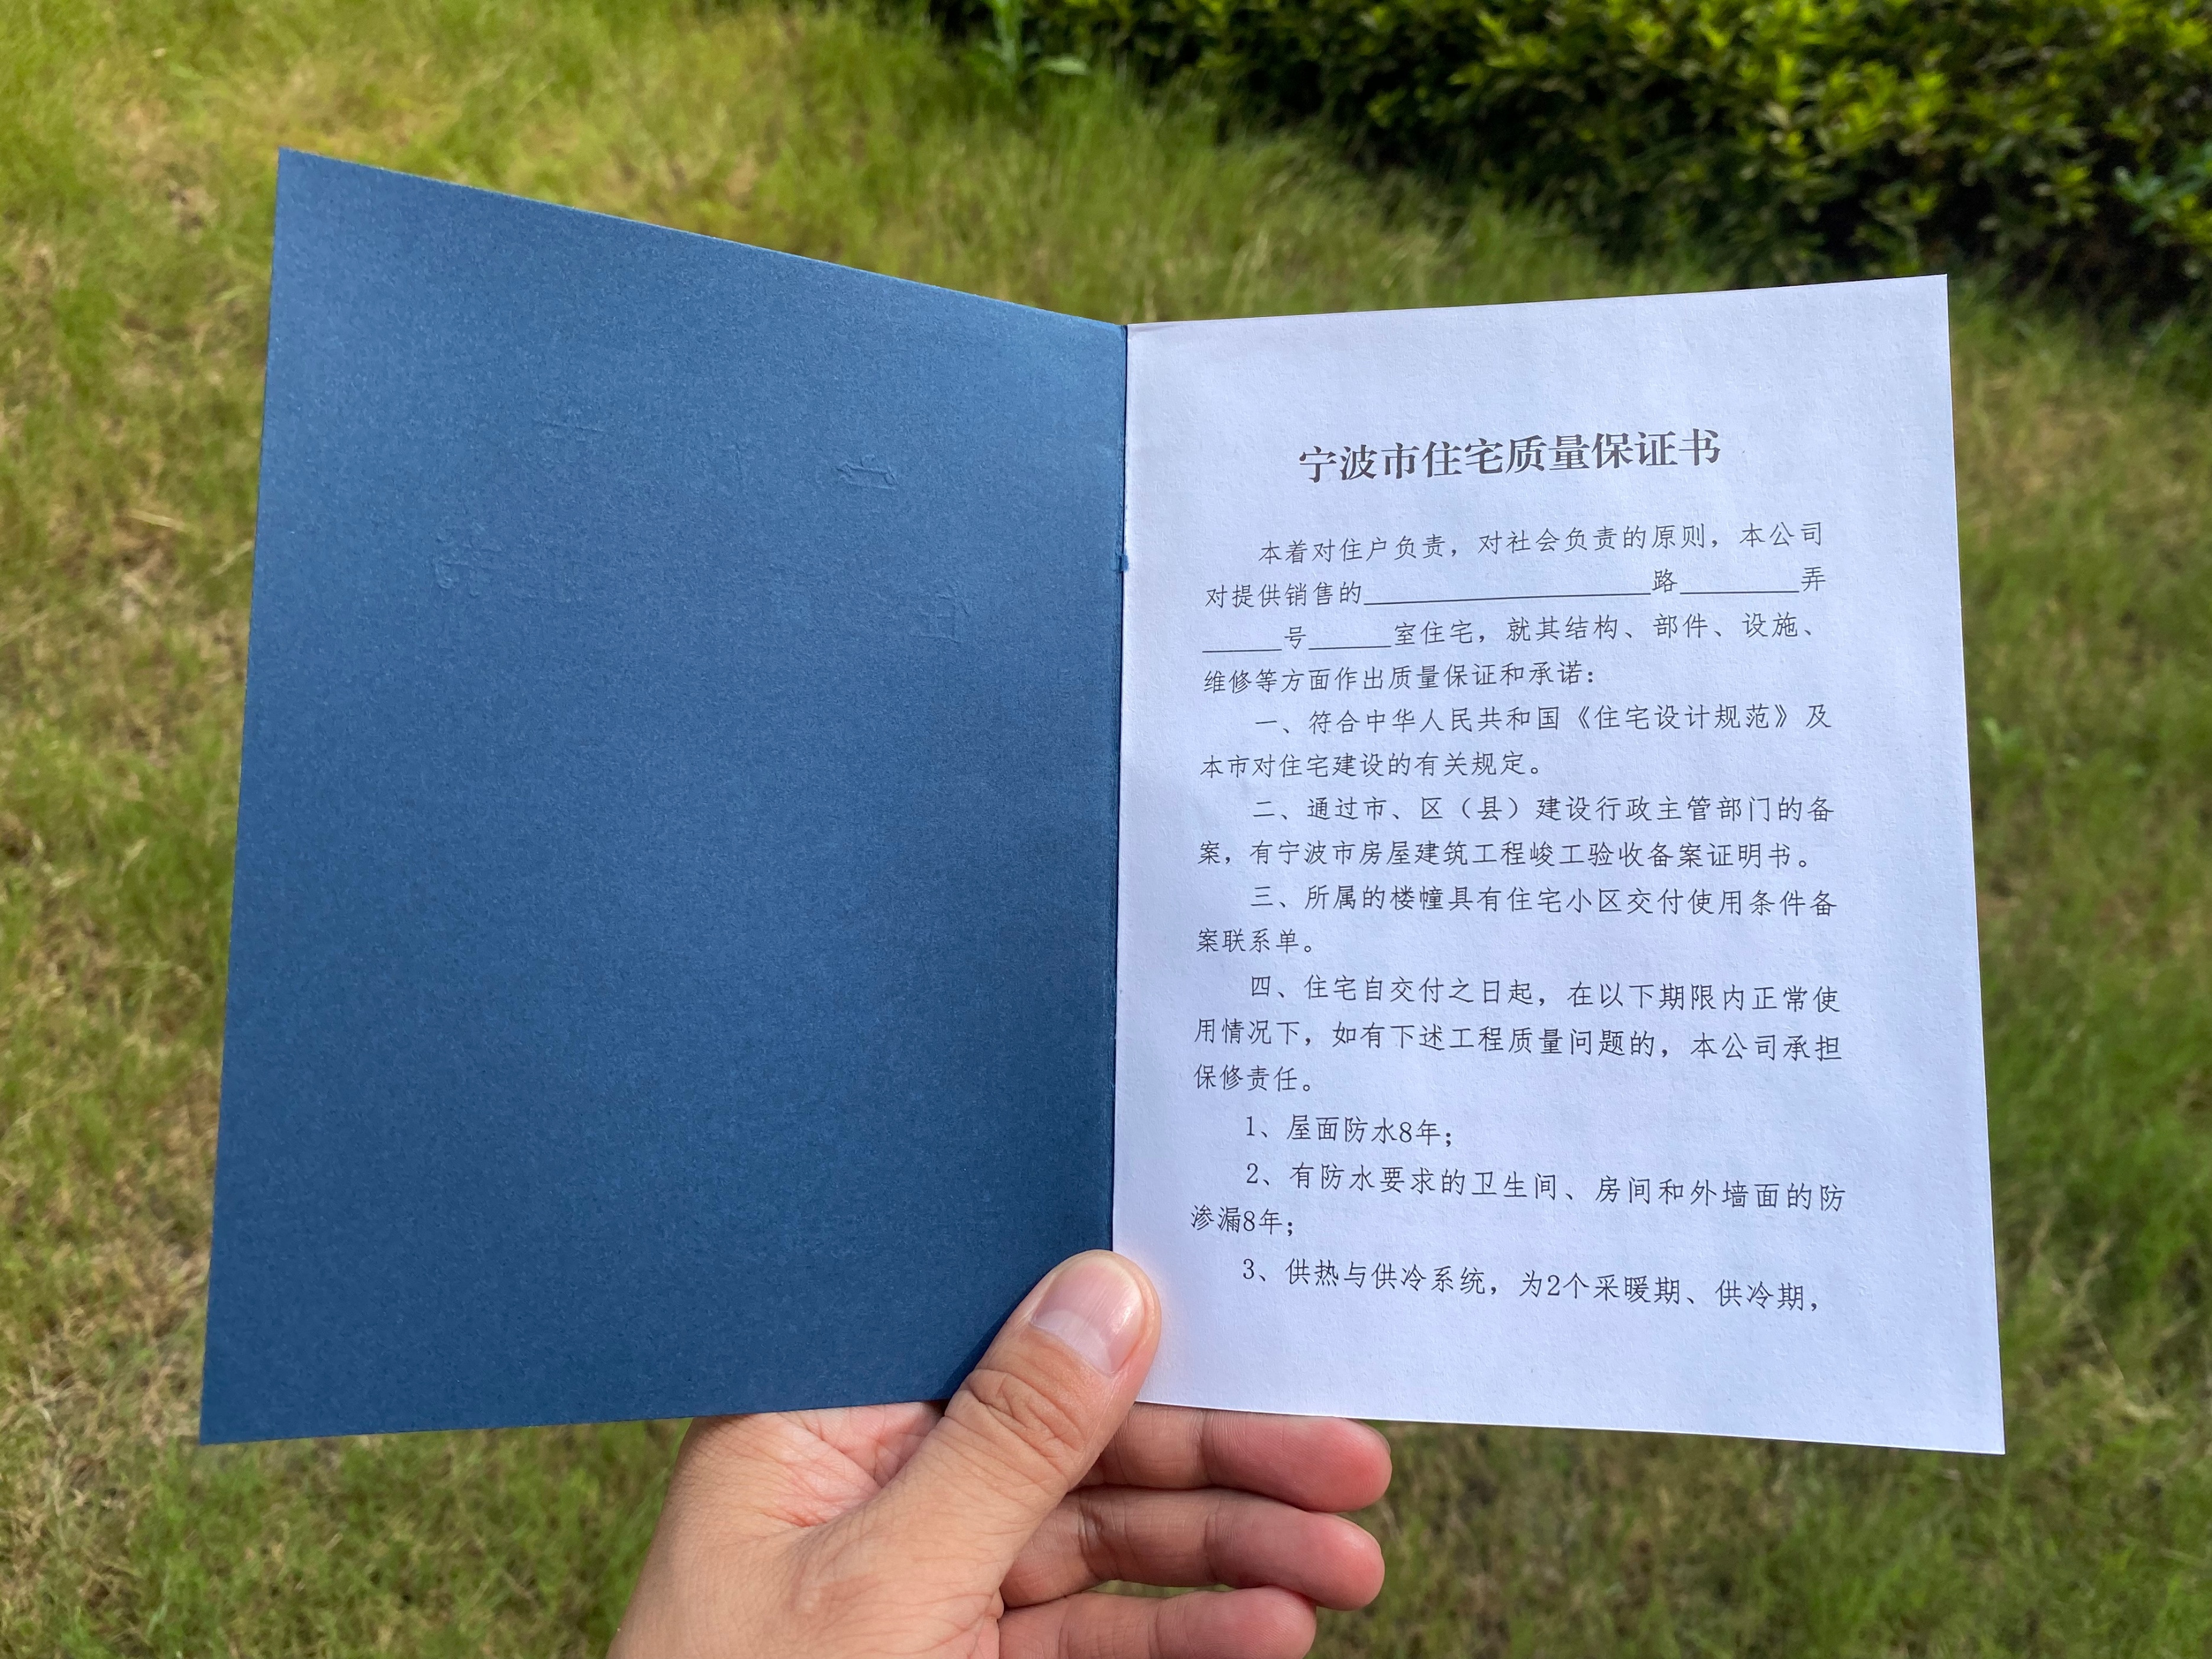 宁波市住宅质量保证书
本着对住户负责，对社会负责的原则，本公司
对提供销售的__________路_____弄
____号____室住宅，就其结构、部件、设施、
维修等方面作出质量保证和承诺：
一、符合中华人民共和国《住宅设计规范》及
本市对住宅建设的有关规定。
二、通过市、区（县）建设行政主管部门的备
案，有宁波市房屋建筑工程峻工验收备案证明书。
三、所属的楼幢具有住宅小区交付使用条件备
案联系单。
四、住宅自交付之日起，在以下期限内正常使
用情况下，如有下述工程质量问题的，本公司承担
保修责任。
1、屋面防水8年；
2、有防水要求的卫生间、房间和外墙面的防
渗漏8年；
3、供热与供冷系统，为2个采暖期、供冷期，